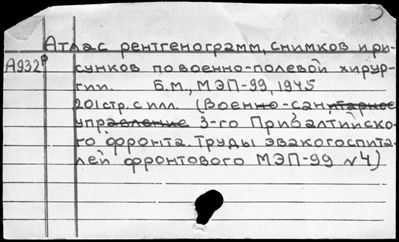 Атлас рентгенограмм, снимков и ри-
А932р сунков по военно-полевой хирур-
гии. Б.м., МЭП-99, 1945
201 стр. с илл. (Военно-санитарное
управление 3-го Прибалтийско-
го фронта. Труды эвакогоспита-
лей фронтового МЭП-99 №4)